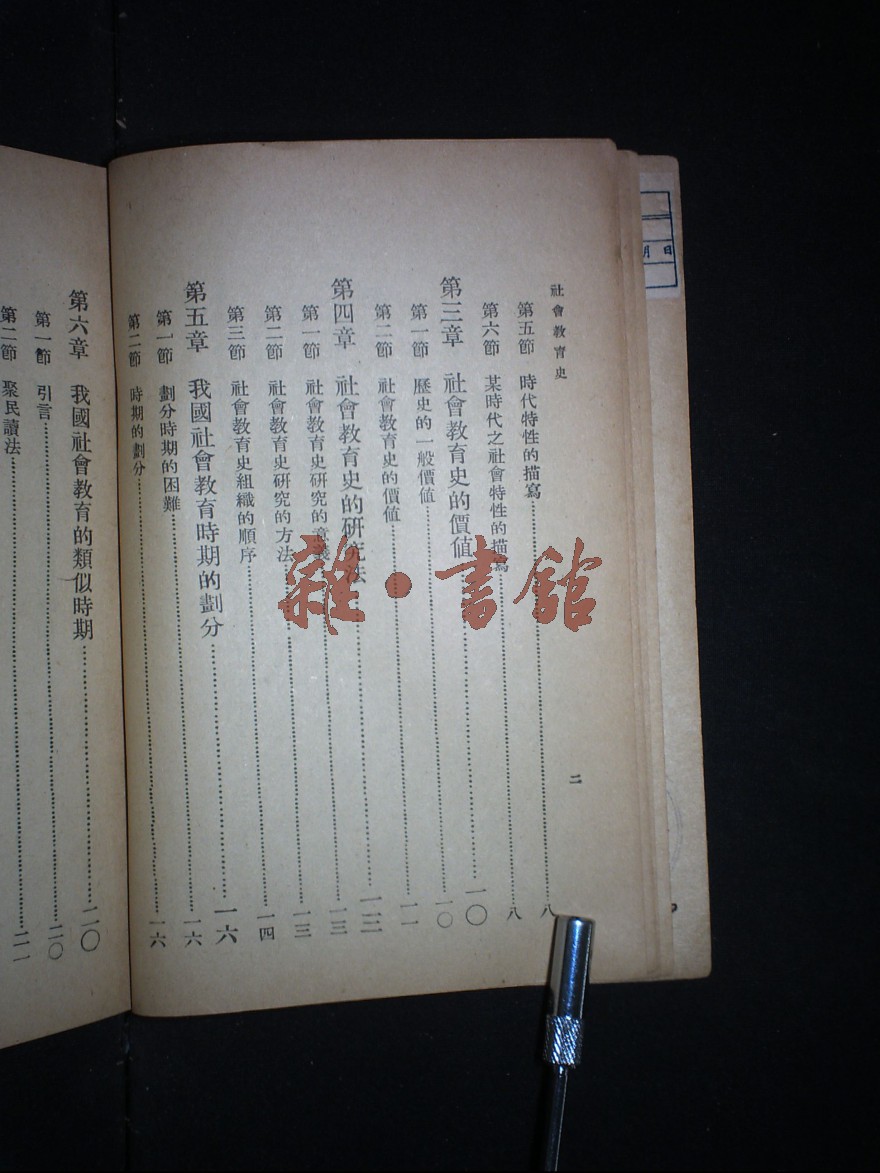 日
社會教育史 二
第五節 時代特性的描寫……八
第六節 某時代之社會特性的描寫……八
第三章 社會教育史的價值……一〇
第一節 歷史的一般價值……一〇
第二節 社會教育史的價值……一一
第四章 社會教育史的研究法……一三
第一節 社會教育史研究的意義……一三
第二節 社會教育史研究的方法……一三
第三節 社會教育史組織的順序……一四
第五章 我國社會教育時期的劃分……一六
第一節 劃分時期的困難……一六
第二節 時期的劃分……一六
第六章 我國社會教育的類似時期……二〇
第一節 引言……二〇
第二節 聚民讀法……二一
雜·書館